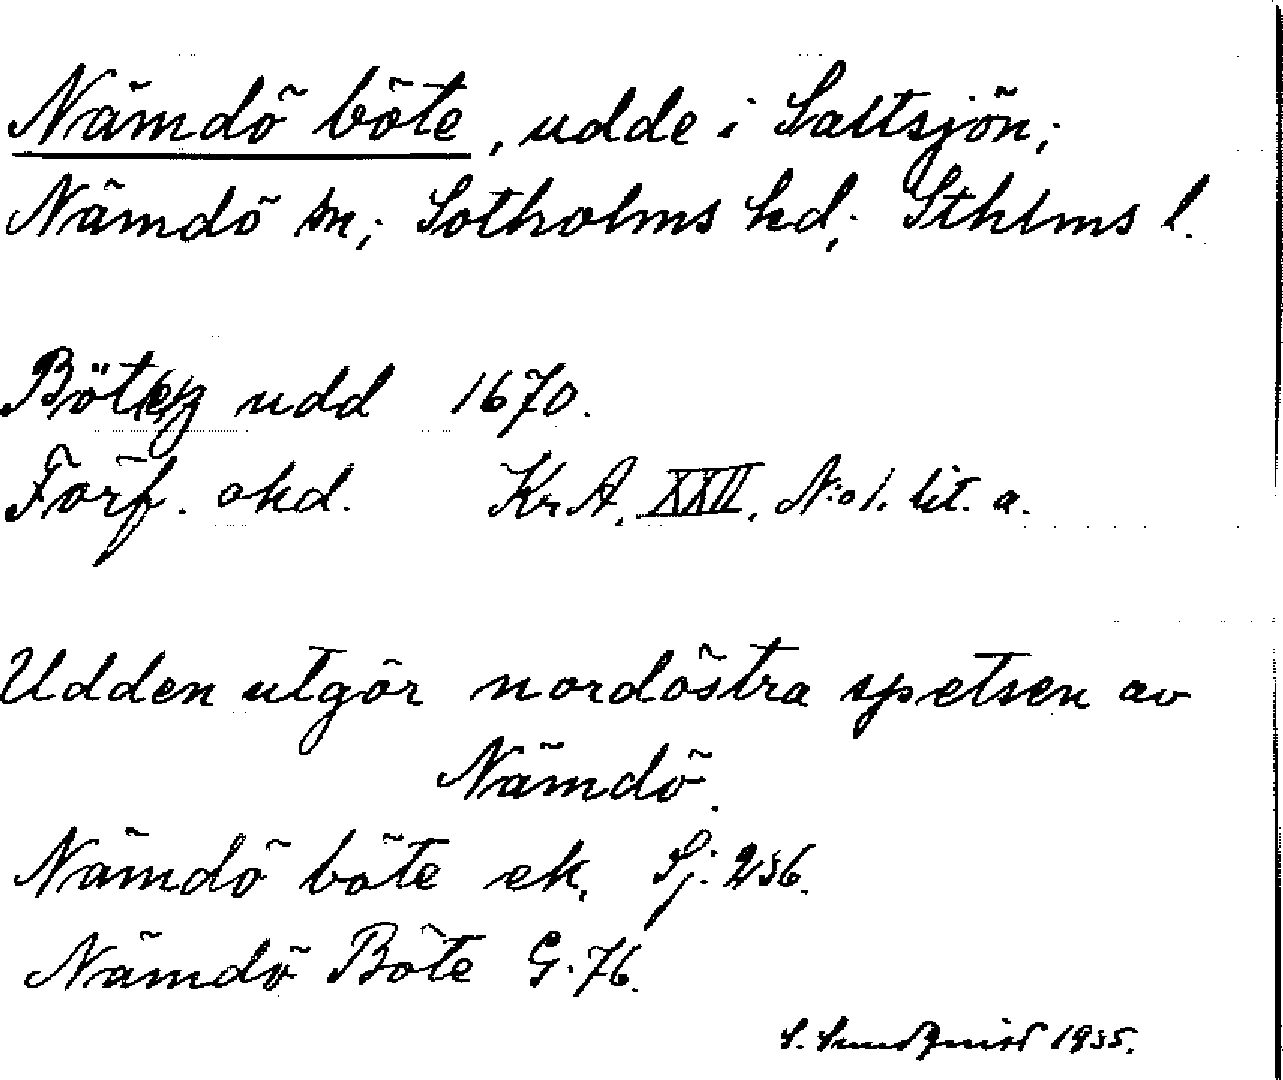 Nämdö böte, udde i Saltsjön;
Nämdö sn; Sotholms hd; Sthlms l.
udd 1670.
Förf. okd. KrA. XXII. N:o 1. lit. a.
Udden utgör nordöstra spetsen av
Nämdö.
Nämdö böte ek. Sj. 236.
Nämdö Böte G. 76.
S. Sundquist 1935.